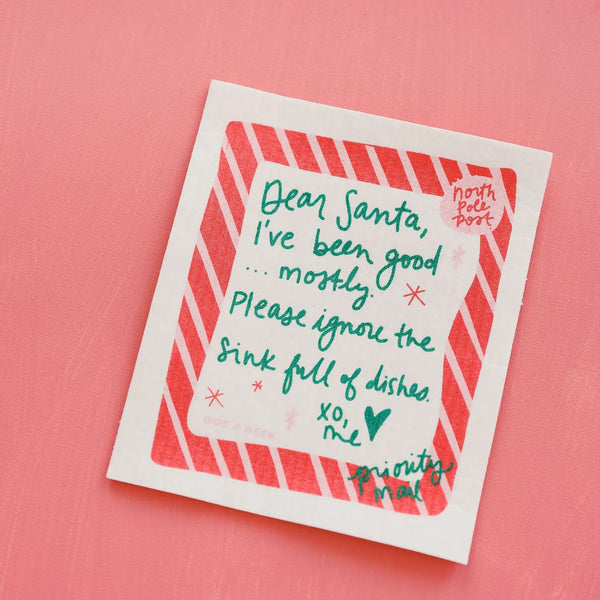 north
pole
post
Dear Santa,
I've been good
... mostly.
Please ignore the
sink full of dishes.
xo,
me
priority
mail